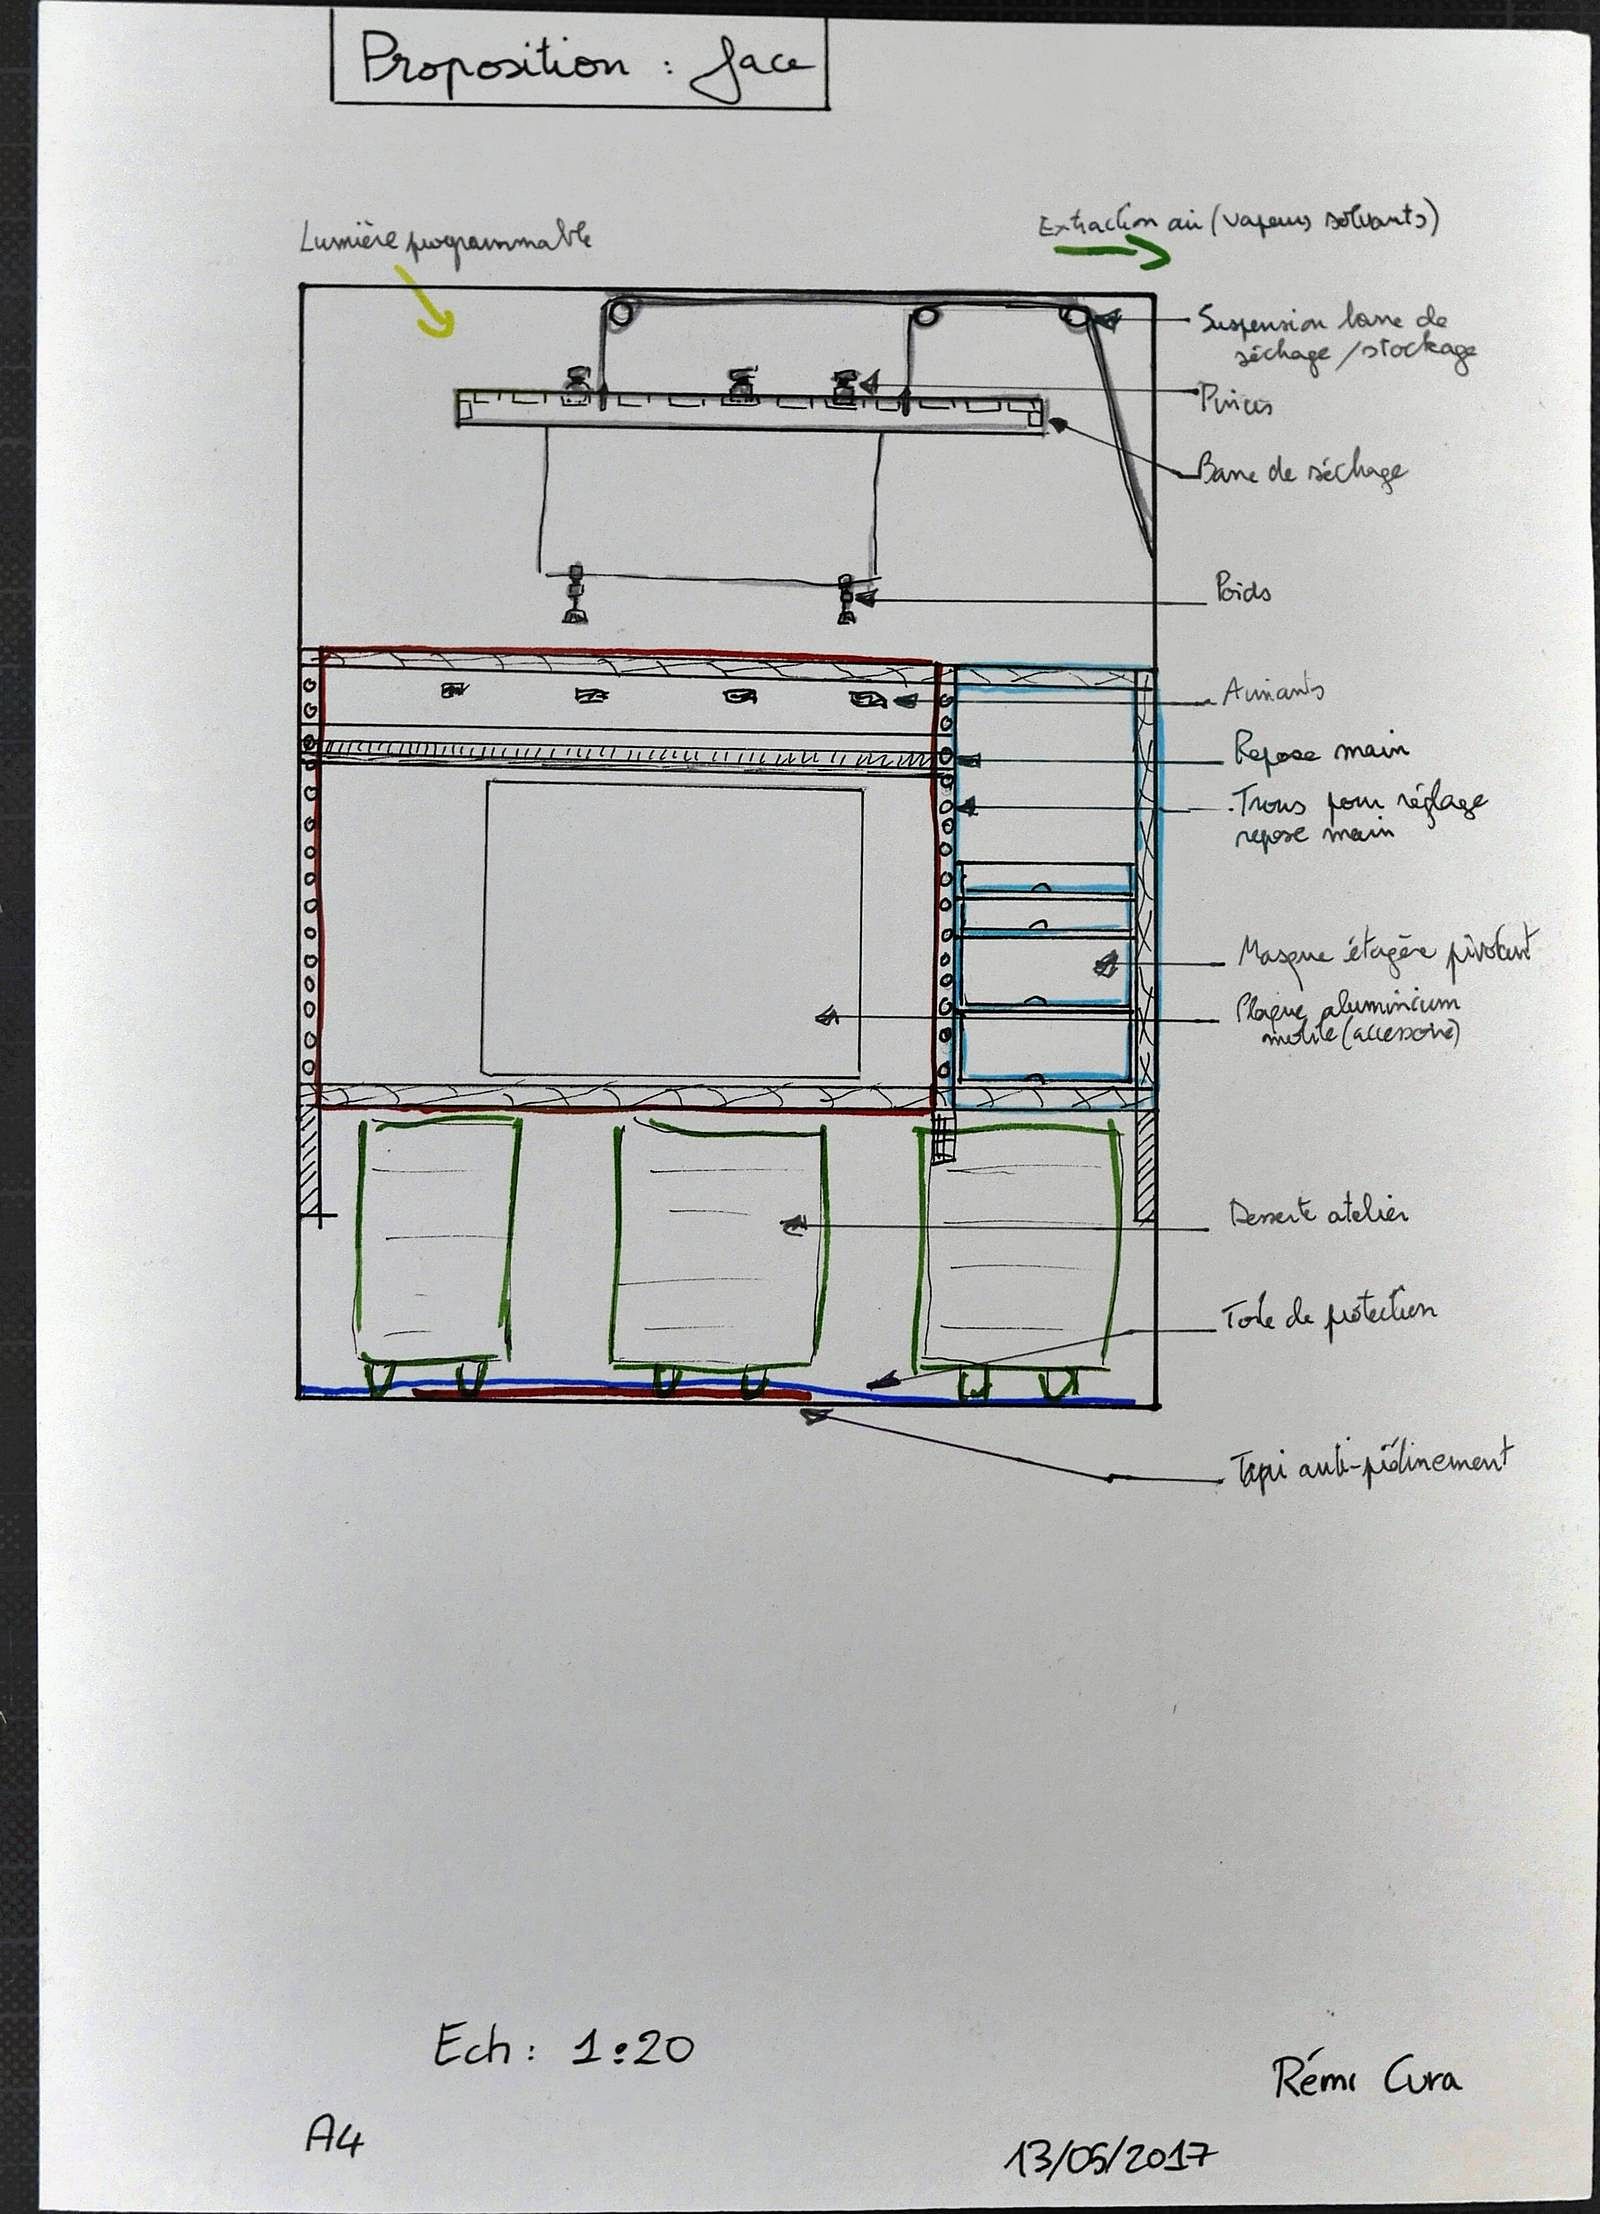 Proposition : face
Lumière programmable
Extraction air (vapeurs solvants)
Suspension barre de
séchage / stockage
Pinces
Barre de séchage
Poids
Aimants
Repose main
Trous pour réglage
repose main
Masque étagère pivotant
Plaque aluminium
mobile (accessoire)
Desserte atelier
de protection
Tapi anti-piétinement
Ech : 1:20
Rémi Cura
A4
13/05/2017